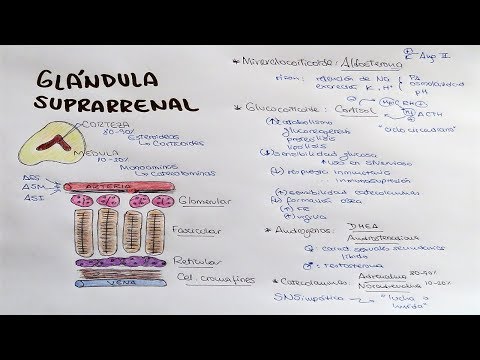 GLÁNDULA
SUPRARRENAL
CORTEZA
80-90%
Esteroideos
↳ Corticoides
MÉDULA
10-20%
Monoaminas
↳ Catecolaminas
ASS
ASM
ASI
ARTERIA
Glomerular
Fascicular
Reticular
Cel. cromafines
VENA
* Mineralocorticoide: Aldosterona
Ang II
riñon: retención de Na
excreción K, H⁺
PA
osmolaridad
pH
* Glucocorticoide: Cortisol
CRH
ACTH
"ciclo circadiano"
catabolismo
gluconeogénesis
proteólisis
lipólisis
sensibilidad glucosa
uso en SNervioso
respuesta inmunitaria
inmunosupresión
sensibilidad catecolaminas
formación ósea
FG
vigilia
* Andrógenos: DHEA
Androstenediona
♀: caract. sexuales secundarios
libido
♂: testosterona
* Catecolaminas: Adrenalina 80-90%
Noradrenalina 10-20%
SNSimpático → "lucha o
huida"